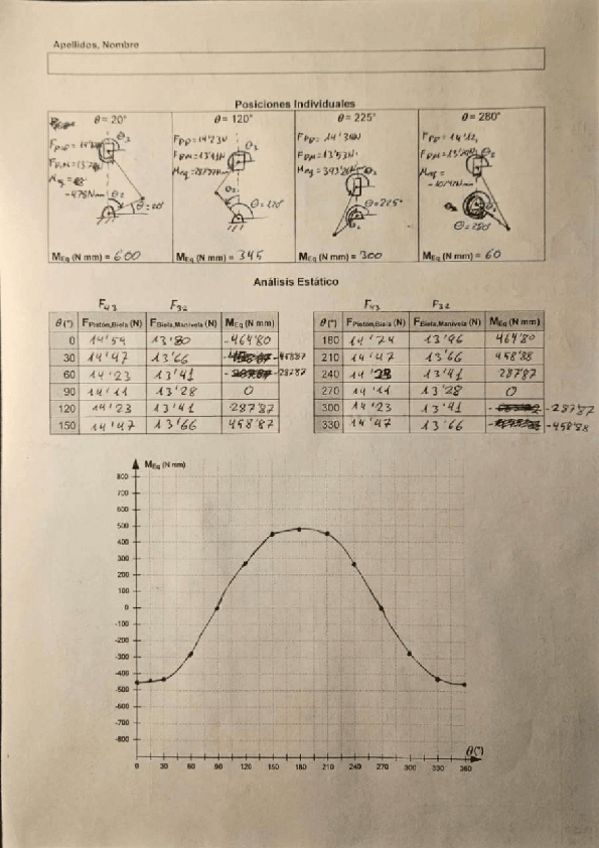 Apellidos, Nombre
Posiciones Individuales
θ= 20°
θ = 120°
θ = 225°
θ = 280°
θ=20°
θ=120°
θ=225°
θ=280°
M_Eq (N mm) = 600
M_Eq (N mm) = 345
M_Eq (N mm) = 300
M_Eq (N mm) = 60
Análisis Estático
F43 F32
θ (°) F_Pistón,Biela (N) F_Biela,Manivela (N) M_Eq (N mm)
0 14'54 13'80 -464'80
30 14'47 13'66 -458'87
60 14'23 13'41 -287'87
90 14'11 13'28 0
120 14'23 13'41 287'87
150 14'47 13'66 458'87
F43 F32
θ (°) F_Pistón,Biela (N) F_Biela,Manivela (N) M_Eq (N mm)
180 14'74 13'96 464'80
210 14'47 13'66 458'88
240 14'23 13'41 287'87
270 14'11 13'28 0
300 14'23 13'41 -287'87
330 14'47 13'66 -458'88
M_Eq (N mm)
800
700
600
500
400
300
200
100
0
-100
-200
-300
-400
-500
-600
-700
-800
θ(°)
0 30 60 90 120 150 180 210 240 270 300 330 360